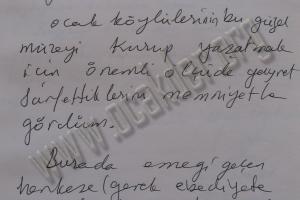 ocak köylülerinin bu güzel
müzeyi kurup yaşatmak
için önemli ölçüde gayret
sarfettiklerini memniyetle
gördüm.
Burada emeği geçen
herkese (gerek ebediyete